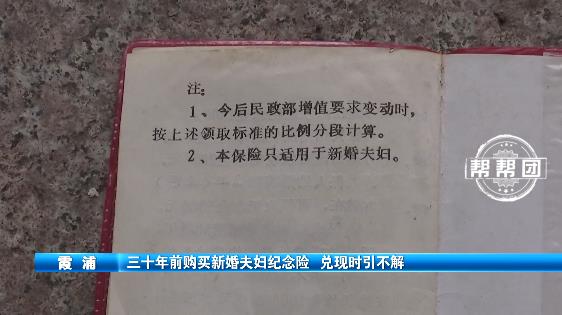 注：
1、今后民政部增值要求变动时，
按上述领取标准的比例分段计算。
2、本保险只适用于新婚夫妇。
帮帮团
霞浦 三十年前购买新婚夫妇纪念险 兑现时引不解